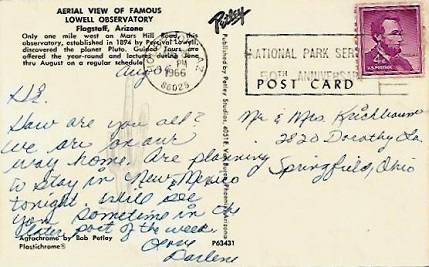 AERIAL VIEW OF FAMOUS
LOWELL OBSERVATORY
Flagstaff, Arizona
Only one mile west on Mars Hill Road, this
observatory, established in 1894 by Percival Lowell,
discovered the planet Pluto. Guided Tours are
offered the year-round and lectures during June
thru August on a regular schedule.
Aug
Hi,
How are you all?
We are on our
way home. Are planning
to stay in New Mexico
tonight. Will see
you sometime in the
later part of the week.
Love
Darlene
Agfachrome by Bob Petley
Plastichrome®
P63431
Petley
Published by Petley Studios, 4051 E. Van Buren, Phoenix, Arizona
PM
1966
86025
NATIONAL PARK SERVICE
50TH ANNIVERSARY
POST CARD
4¢
U.S. POSTAGE
Mr & Mrs
2820 Dorothy La
Springfield, Ohio